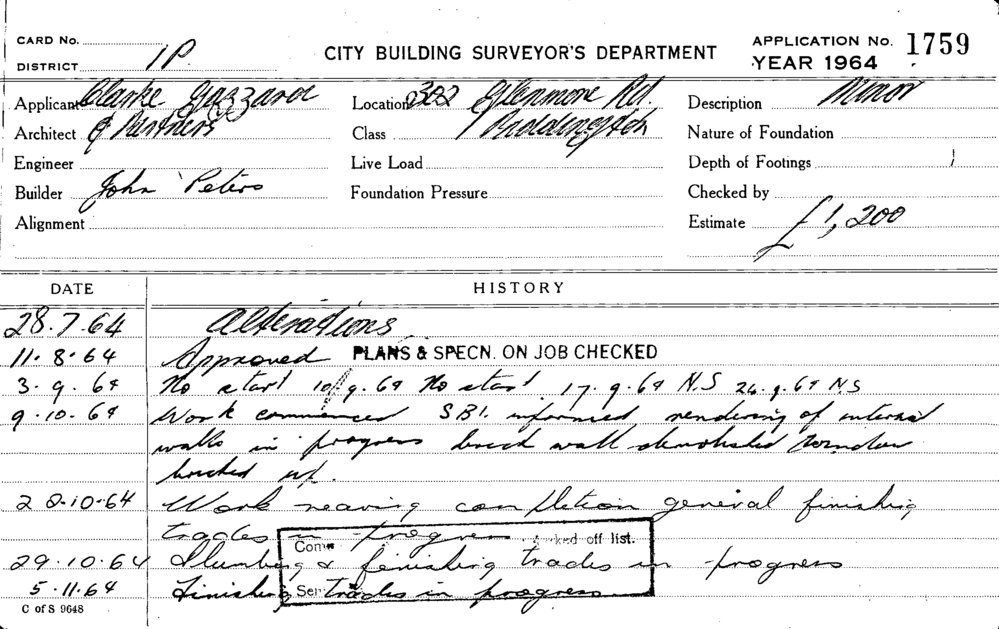 CARD No.
DISTRICT 1P
CITY BUILDING SURVEYOR'S DEPARTMENT
APPLICATION No. 1759
YEAR 1964
Applicant Clarke Gazzard
Architect & Partners
Engineer
Builder John Peters
Alignment
Location 302 Glenmore Rd.
Class Paddington
Live Load
Foundation Pressure
Description Minor
Nature of Foundation
Depth of Footings
Checked by
Estimate £1,200
DATE HISTORY
28.7.64 Alterations
11.8.64 Approved PLANS & SPECN. ON JOB CHECKED
3.9.64 No start 10.9.64 No start 17.9.64 N.S 24.9.64 N S
9.10.64 Work commenced SBI. informed rendering of internal
walls in progress brick wall demolished window
bricked up.
20.10.64 Work nearing completion general finishing
trades in progress
off list.
29.10.64 Plumbing & finishing trades in progress
5.11.64 Finishing trades in progress
C of S 9648